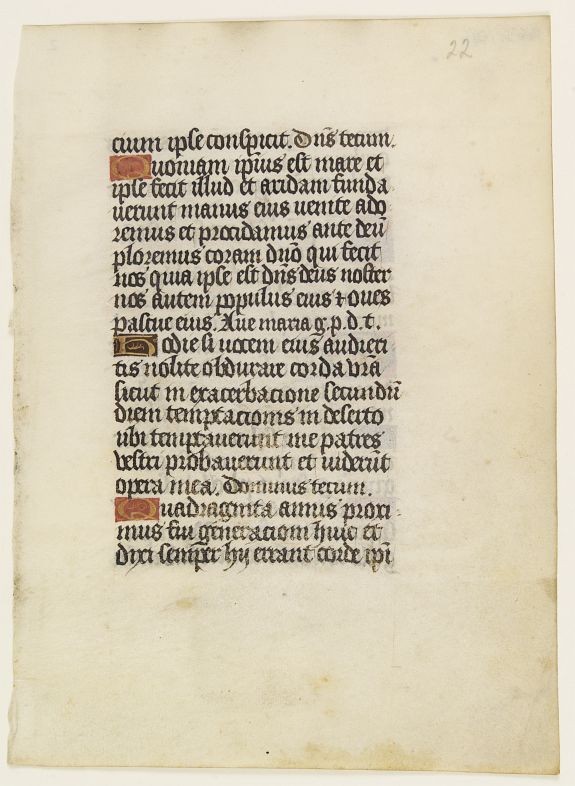 22
cium ipse conspicit. Dn̄s tecum.
Quoniam ipsius est mare et
ipse fecit illud et aridam funda
uerunt manus eius uenite ado
remus et procidamus ante deū
ploremus coram dn̄o qui fecit
nos quia ipse est dn̄s deus noster
nos autem populus eius ⁊ oues
pascue eius. Aue maria g. p. d. t.
Hodie si uocem eius audieri
tis nolite obdurare corda vr̄a
sicut in exacerbacione secundū
diem temptacionis in deserto
ubi temptauerunt me patres
vestri probauerunt et uiderūt
opera mea. Dominus tecum.
Quadraginta annis proxi
mus fui generacioni huic et
dixi semper hij errant corde ip̄i